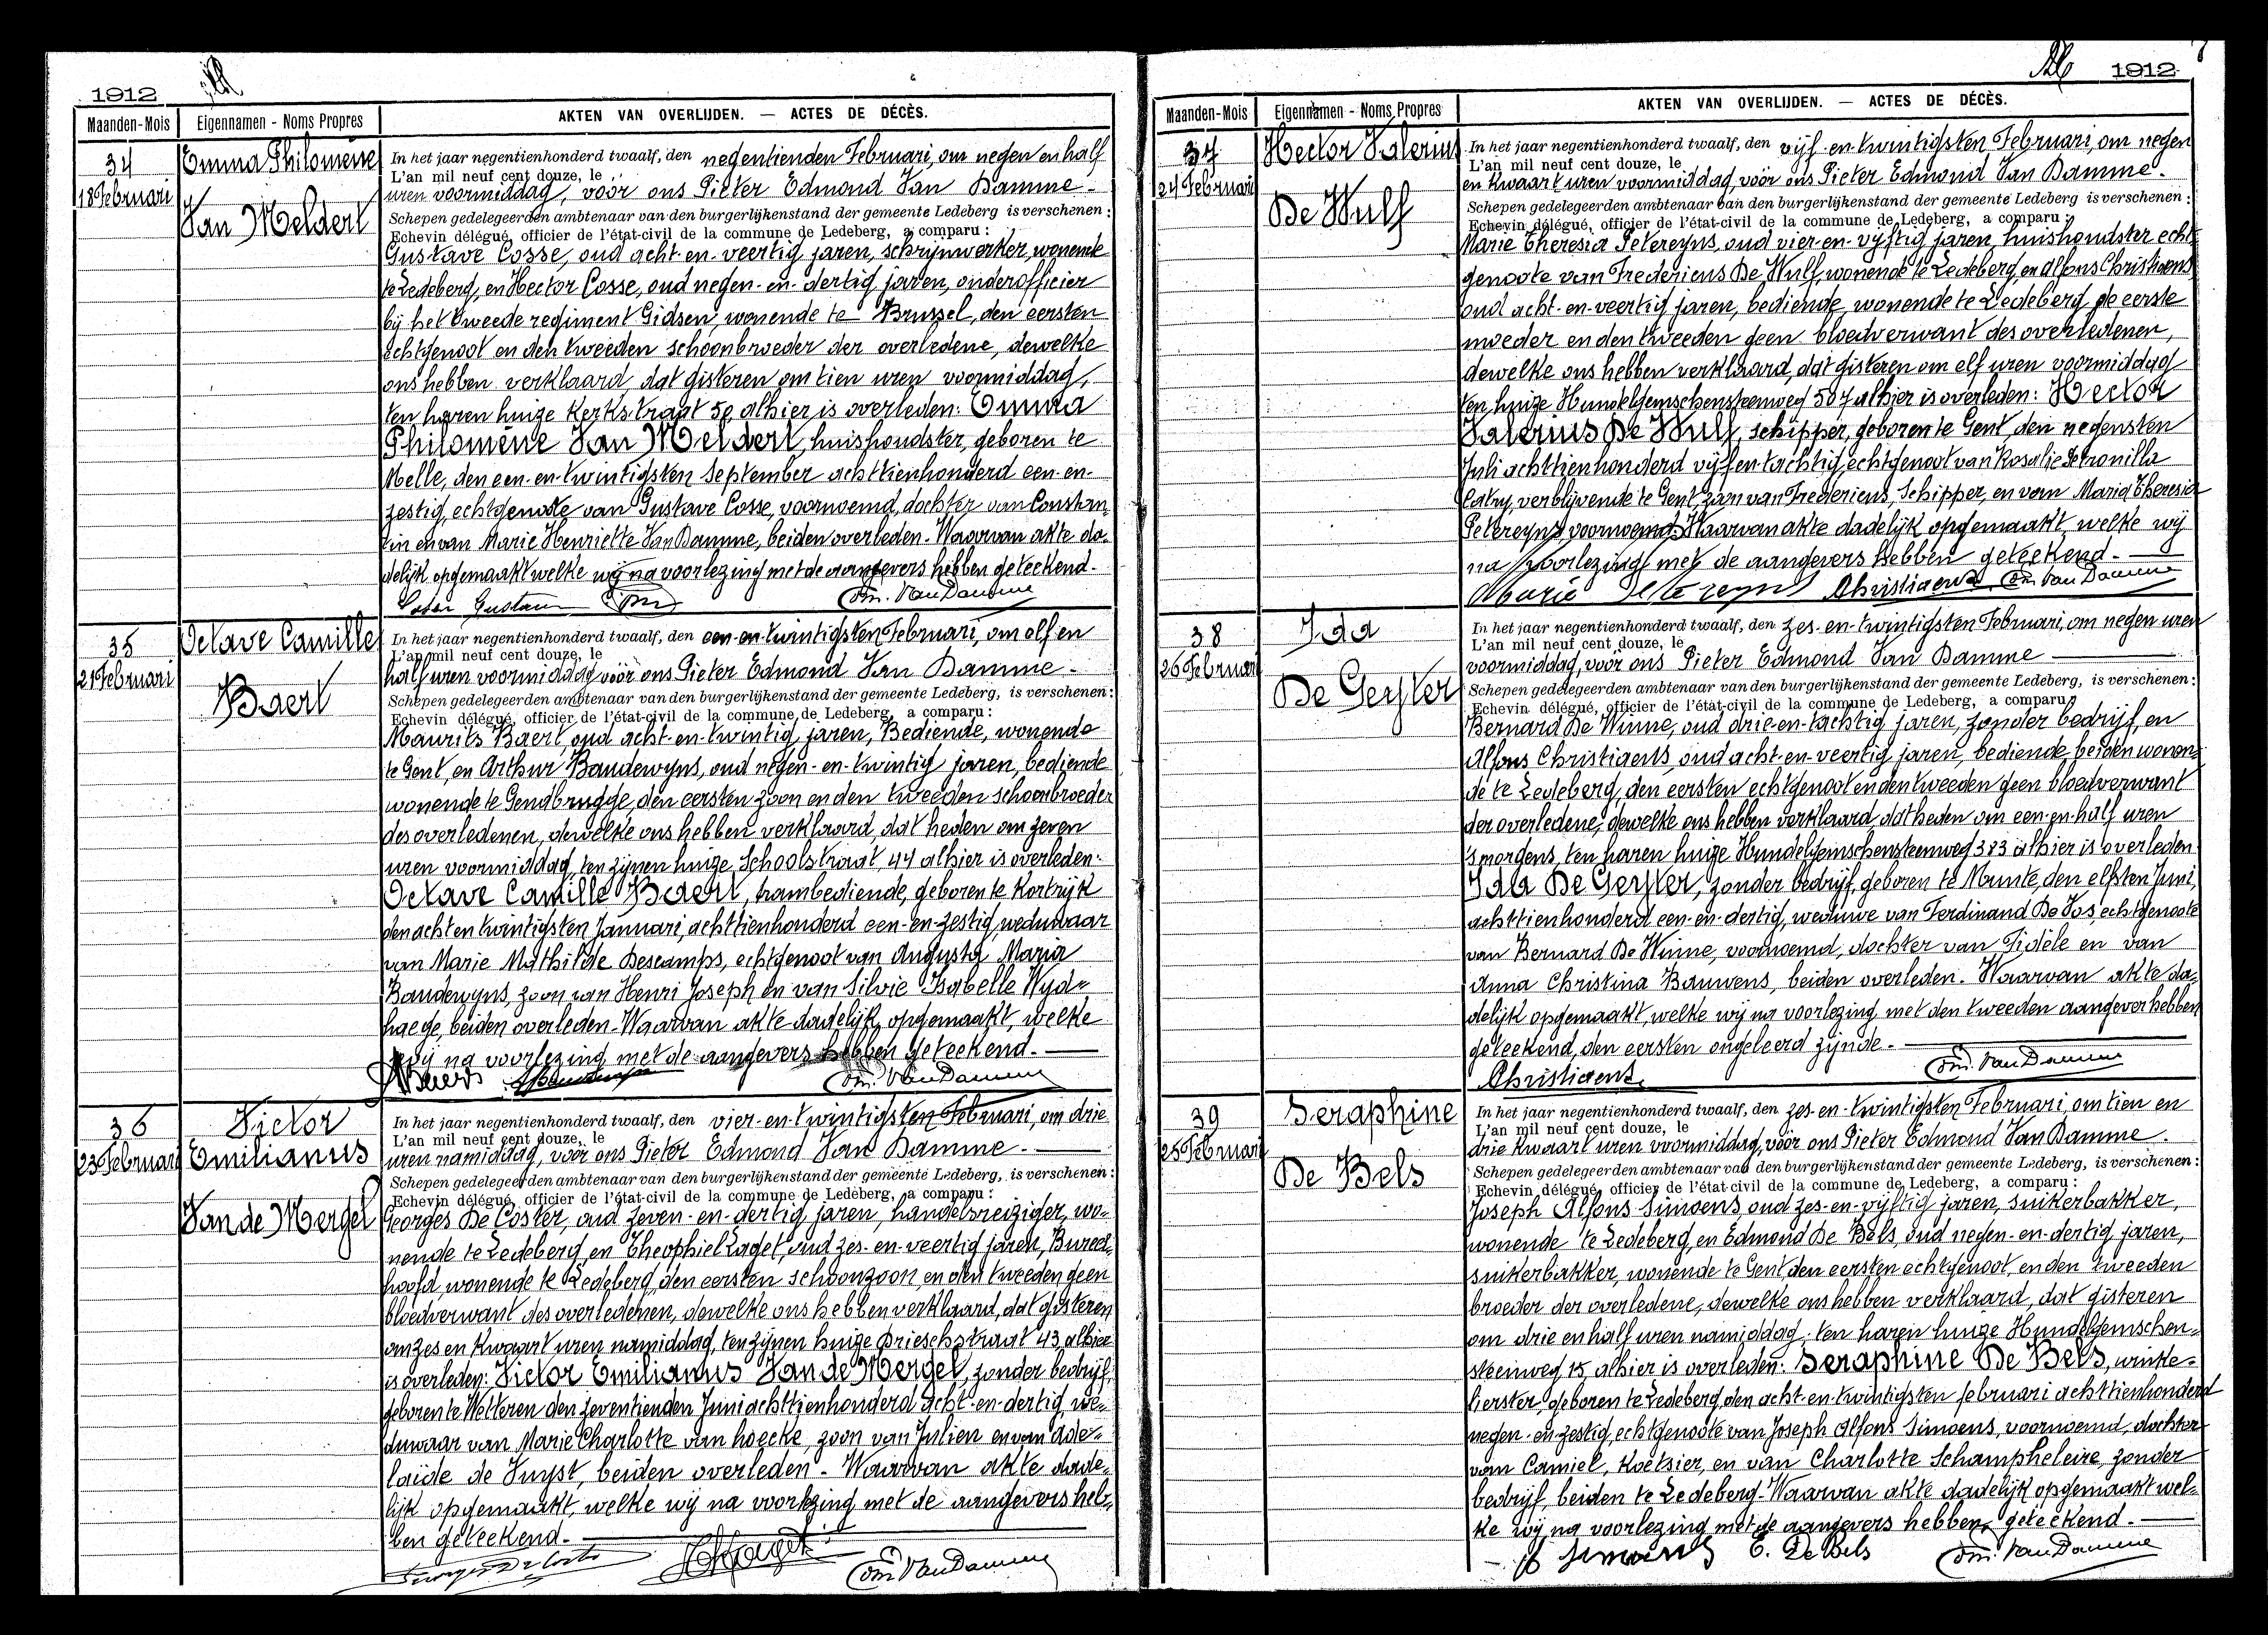 1912
Maanden-Mois
Eigennamen - Noms Propres
AKTEN VAN OVERLIJDEN. — ACTES DE DÉCÈS.
34
18 Februari
Emma Philomène
Van Meldert
In het jaar negentienhonderd twaalf, den negentienden Februari, om negen en half
L'an mil neuf cent douze, le
uren voormiddag, voor ons Pieter Edmond Van Damme -
Schepen gedelegeerden ambtenaar van den burgerlijkenstand der gemeente Ledeberg is verschenen :
Echevin délégué, officier de l'état-civil de la commune de Ledeberg, a comparu :
Gustave Cosse, oud acht-en-veertig jaren, schrijnwerker, wonende
te Ledeberg, en Hector Cosse, oud negen-en-dertig jaren, onderofficier
bij het tweede regiment Gidsen, wonende te Brussel, den eersten
echtgenoot en den tweeden schoonbroeder der overledene, dewelke
ons hebben verklaard, dat gisteren om tien uren voormiddag,
ten haren huize Kerkstraat 50 alhier is overleden: Emma
Philomène Van Meldert, huishoudster, geboren te
Melle, den een-en-twintigsten September achttienhonderd een-en-
zestig, echtgenote van Gustave Cosse, voornoemd, dochter van Constan-
tin en van Marie Henriette Van Damme, beiden overleden. Waarvan akte da-
delijk opgemaakt welke wij na voorlezing met de aangevers hebben geteekend.
Gustave Em. Van Damme
35
21 Februari
Octave Camille
Baert
In het jaar negentienhonderd twaalf, den een-en-twintigsten Februari, om elf en
L'an mil neuf cent douze, le
half uren voormiddag voor ons Pieter Edmond Van Damme -
Schepen gedelegeerden ambtenaar van den burgerlijkenstand der gemeente Ledeberg, is verschenen:
Echevin délégué, officier de l'état-civil de la commune de Ledeberg, a comparu :
Maurits Baert, oud acht-en-twintig jaren, Bediende, wonende
te Gent, en Arthur Baudewyns, oud negen-en-twintig jaren, bediende
wonende te Gendbrugge, den eersten zoon en den tweeden schoonbroeder
des overledenen, dewelke ons hebben verklaard, dat heden om zeven
uren voormiddag, ten zijnen huize, Schoolstraat, 44 alhier is overleden:
Octave Camille Baert, trambediende, geboren te Kortrijk
den acht en twintigsten Januari, achttienhonderd een-en-zestig, weduwaar
van Marie Mathilde Descamps, echtgenoot van Augusta Maria
Baudewyns, zoon van Henri Joseph en van Silvie Isabelle Wyd-
haege, beiden overleden. Waarvan akte dadelijk opgemaakt, welke
wij na voorlezing met de aangevers hebben geteekend.
Em. Van Damme
36
23 Februari
Victor
Emilianus
Van de Mergel
In het jaar negentienhonderd twaalf, den vier-en-twintigsten Februari, om drie
L'an mil neuf cent douze, le
uren namiddag, voor ons Pieter Edmond Van Damme.
Schepen gedelegeerden ambtenaar van den burgerlijkenstand der gemeente Ledeberg, is verschenen:
Echevin délégué, officier de l'état-civil de la commune de Ledeberg, a comparu :
Georges De Coster, oud zeven-en-dertig jaren, handelsreiziger, wo-
nende te Ledeberg, en Theophiel Laget, oud zes-en-veertig jaren, Bureel-
hoofd, wonende te Ledeberg, den eersten schoonzoon, en den tweeden geen
bloedverwant des overledenen, dewelke ons hebben verklaard, dat gisteren
om zes en kwaart uren namiddag, ten zijnen huize Drieschstraat 43, alhier
is overleden: Victor Emilianus Van de Mergel, zonder bedrijf,
geboren te Wetteren den zeventienden Juni achttienhonderd acht-en-dertig, we-
duwaar van Marie Charlotte van hoecke, zoon van Julien en van Ade-
laïde de Vuyst, beiden overleden. Waarvan akte dade-
lijk opgemaakt, welke wij na voorlezing met de aangevers heb-
ben geteekend.
Georges De Coster Em. Van Damme
1912
Maanden-Mois
Eigennamen - Noms Propres
AKTEN VAN OVERLIJDEN. — ACTES DE DÉCÈS.
37
24 Februari
Hector Valerius
De Wulf
In het jaar negentienhonderd twaalf, den vijf-en-twintigsten Februari, om negen
L'an mil neuf cent douze, le
en kwaart uren voormiddag, voor ons Pieter Edmond Van Damme.
Schepen gedelegeerden ambtenaar van den burgerlijkenstand der gemeente Ledeberg is verschenen :
Echevin délégué, officier de l'état-civil de la commune de Ledeberg, a comparu :
Marie Theresia Petereyns, oud vier-en-vijftig jaren, huishoudster echt-
genoote van Fredericus De Wulf, wonende te Ledeberg, en Alfons Christiaens
oud acht-en-veertig jaren, bediende, wonende te Ledeberg, de eerste
moeder en den tweeden geen bloedverwant des overledenen,
dewelke ons hebben verklaard, dat gisteren om elf uren voormiddag
ten huize Hundelgemschensteenweg 507 alhier is overleden: Hector
Valerius De Wulf, schipper, geboren te Gent, den negensten
Juli achttienhonderd vijf en tachtig, echtgenoot van Rosalie Petronilla
Catry, verblijvende te Gent, zoon van Fredericus, Schipper, en van Maria Theresia
Petereyns voornoemd. Waarvan akte dadelijk opgemaakt, welke wij
na voorlezing met de aangevers hebben geteekend.
Marie Petereyns Christiaens Em. Van Damme
38
26 Februari
Ida
De Geyter
In het jaar negentienhonderd twaalf, den zes-en-twintigsten Februari, om negen uren
L'an mil neuf cent douze, le
voormiddag, voor ons Pieter Edmond Van Damme
Schepen gedelegeerden ambtenaar van den burgerlijkenstand der gemeente Ledeberg, is verschenen :
Echevin délégué, officier de l'état-civil de la commune de Ledeberg, a comparu :
Bernard De Winne, oud drie-en-tachtig jaren, zonder bedrijf, en
Alfons Christiaens, oud acht-en-veertig jaren, bediende, beiden wonen-
de te Ledeberg, den eersten echtgenoot en den tweeden geen bloedverwant
der overledene, dewelke ons hebben verklaard dat heden om een-en-half uren
's morgens, ten haren huize Hundelgemschensteenweg 383 alhier is overleden
Ida De Geyter, zonder bedrijf, geboren te Munte, den elfsten Juni,
achttienhonderd een-en-dertig, weduwe van Ferdinand De Vos, echtgenoote
van Bernard De Winne, voornoemd, dochter van Fidèle en van
Anna Christina Bauwens, beiden overleden. Waarvan akte da-
delijk opgemaakt, welke wij na voorlezing, met den tweeden aangever hebben
geteekend, den eersten ongeleerd zijnde.
Christiaens Em. Van Damme
39
25 Februari
Seraphine
De Bels
In het jaar negentienhonderd twaalf, den zes-en-twintigsten Februari, om tien en
L'an mil neuf cent douze, le
drie kwaart uren voormiddag, voor ons Pieter Edmond Van Damme.
Schepen gedelegeerden ambtenaar van den burgerlijkenstand der gemeente Ledeberg, is verschenen :
Echevin délégué, officier de l'état-civil de la commune de Ledeberg, a comparu :
Joseph Alfons Simoens, oud zes-en-vijftig jaren, suikerbakker,
wonende te Ledeberg, en Edmond De Bels, oud negen-en-dertig jaren,
suikerbakker, wonende te Gent, den eersten echtgenoot, en den tweeden
broeder der overledene, dewelke ons hebben verklaard, dat gisteren
om drie en half uren namiddag, ten haren huize Hundelgemschen-
steenweg 15, alhier is overleden: Seraphine De Bels, winke-
lierster, geboren te Ledeberg, den acht-en-twintigsten februari achttienhonderd
negen-en-zestig, echtgenoote van Joseph Alfons Simoens, voornoemd, dochter
van Camiel, Koetsier, en van Charlotte Schampheleire, zonder
bedrijf, beiden te Ledeberg. Waarvan akte dadelijk opgemaakt wel-
ke wij na voorlezing met de aangevers hebben geteekend.
Simoens E. De Bels Em. Van Damme